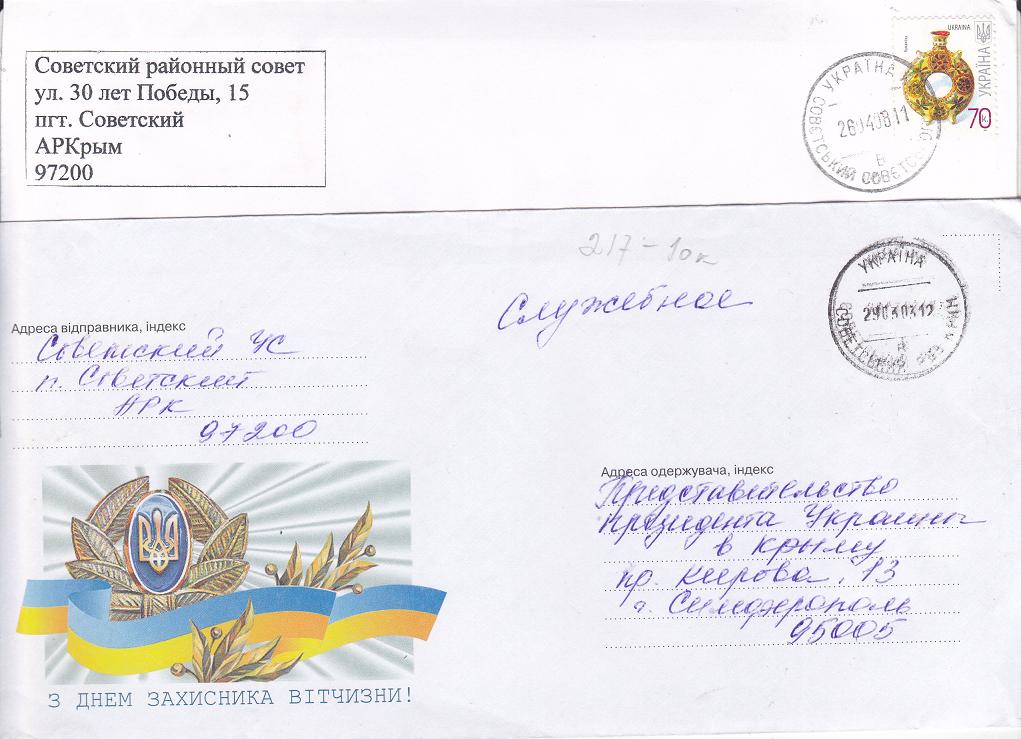 Советский районный совет
ул. 30 лет Победы, 15
пгт. Советский
АРКрым
97200
UKRAINA
УКРАЇНА
70 к.
УКРАЇНА
260408 11
В
СОВЄТСЬКИЙ
217-10к
Служебное
УКРАЇНА
СОВЕТСЬКИЙ
Адреса відправника, індекс
Советский УС
п. Советский
АРК
97200
Адреса одержувача, індекс
Представительство
Президента Украины
в Крыму
пр. Кирова, 13
г. Симферополь
95005
З ДНЕМ ЗАХИСНИКА ВІТЧИЗНИ!